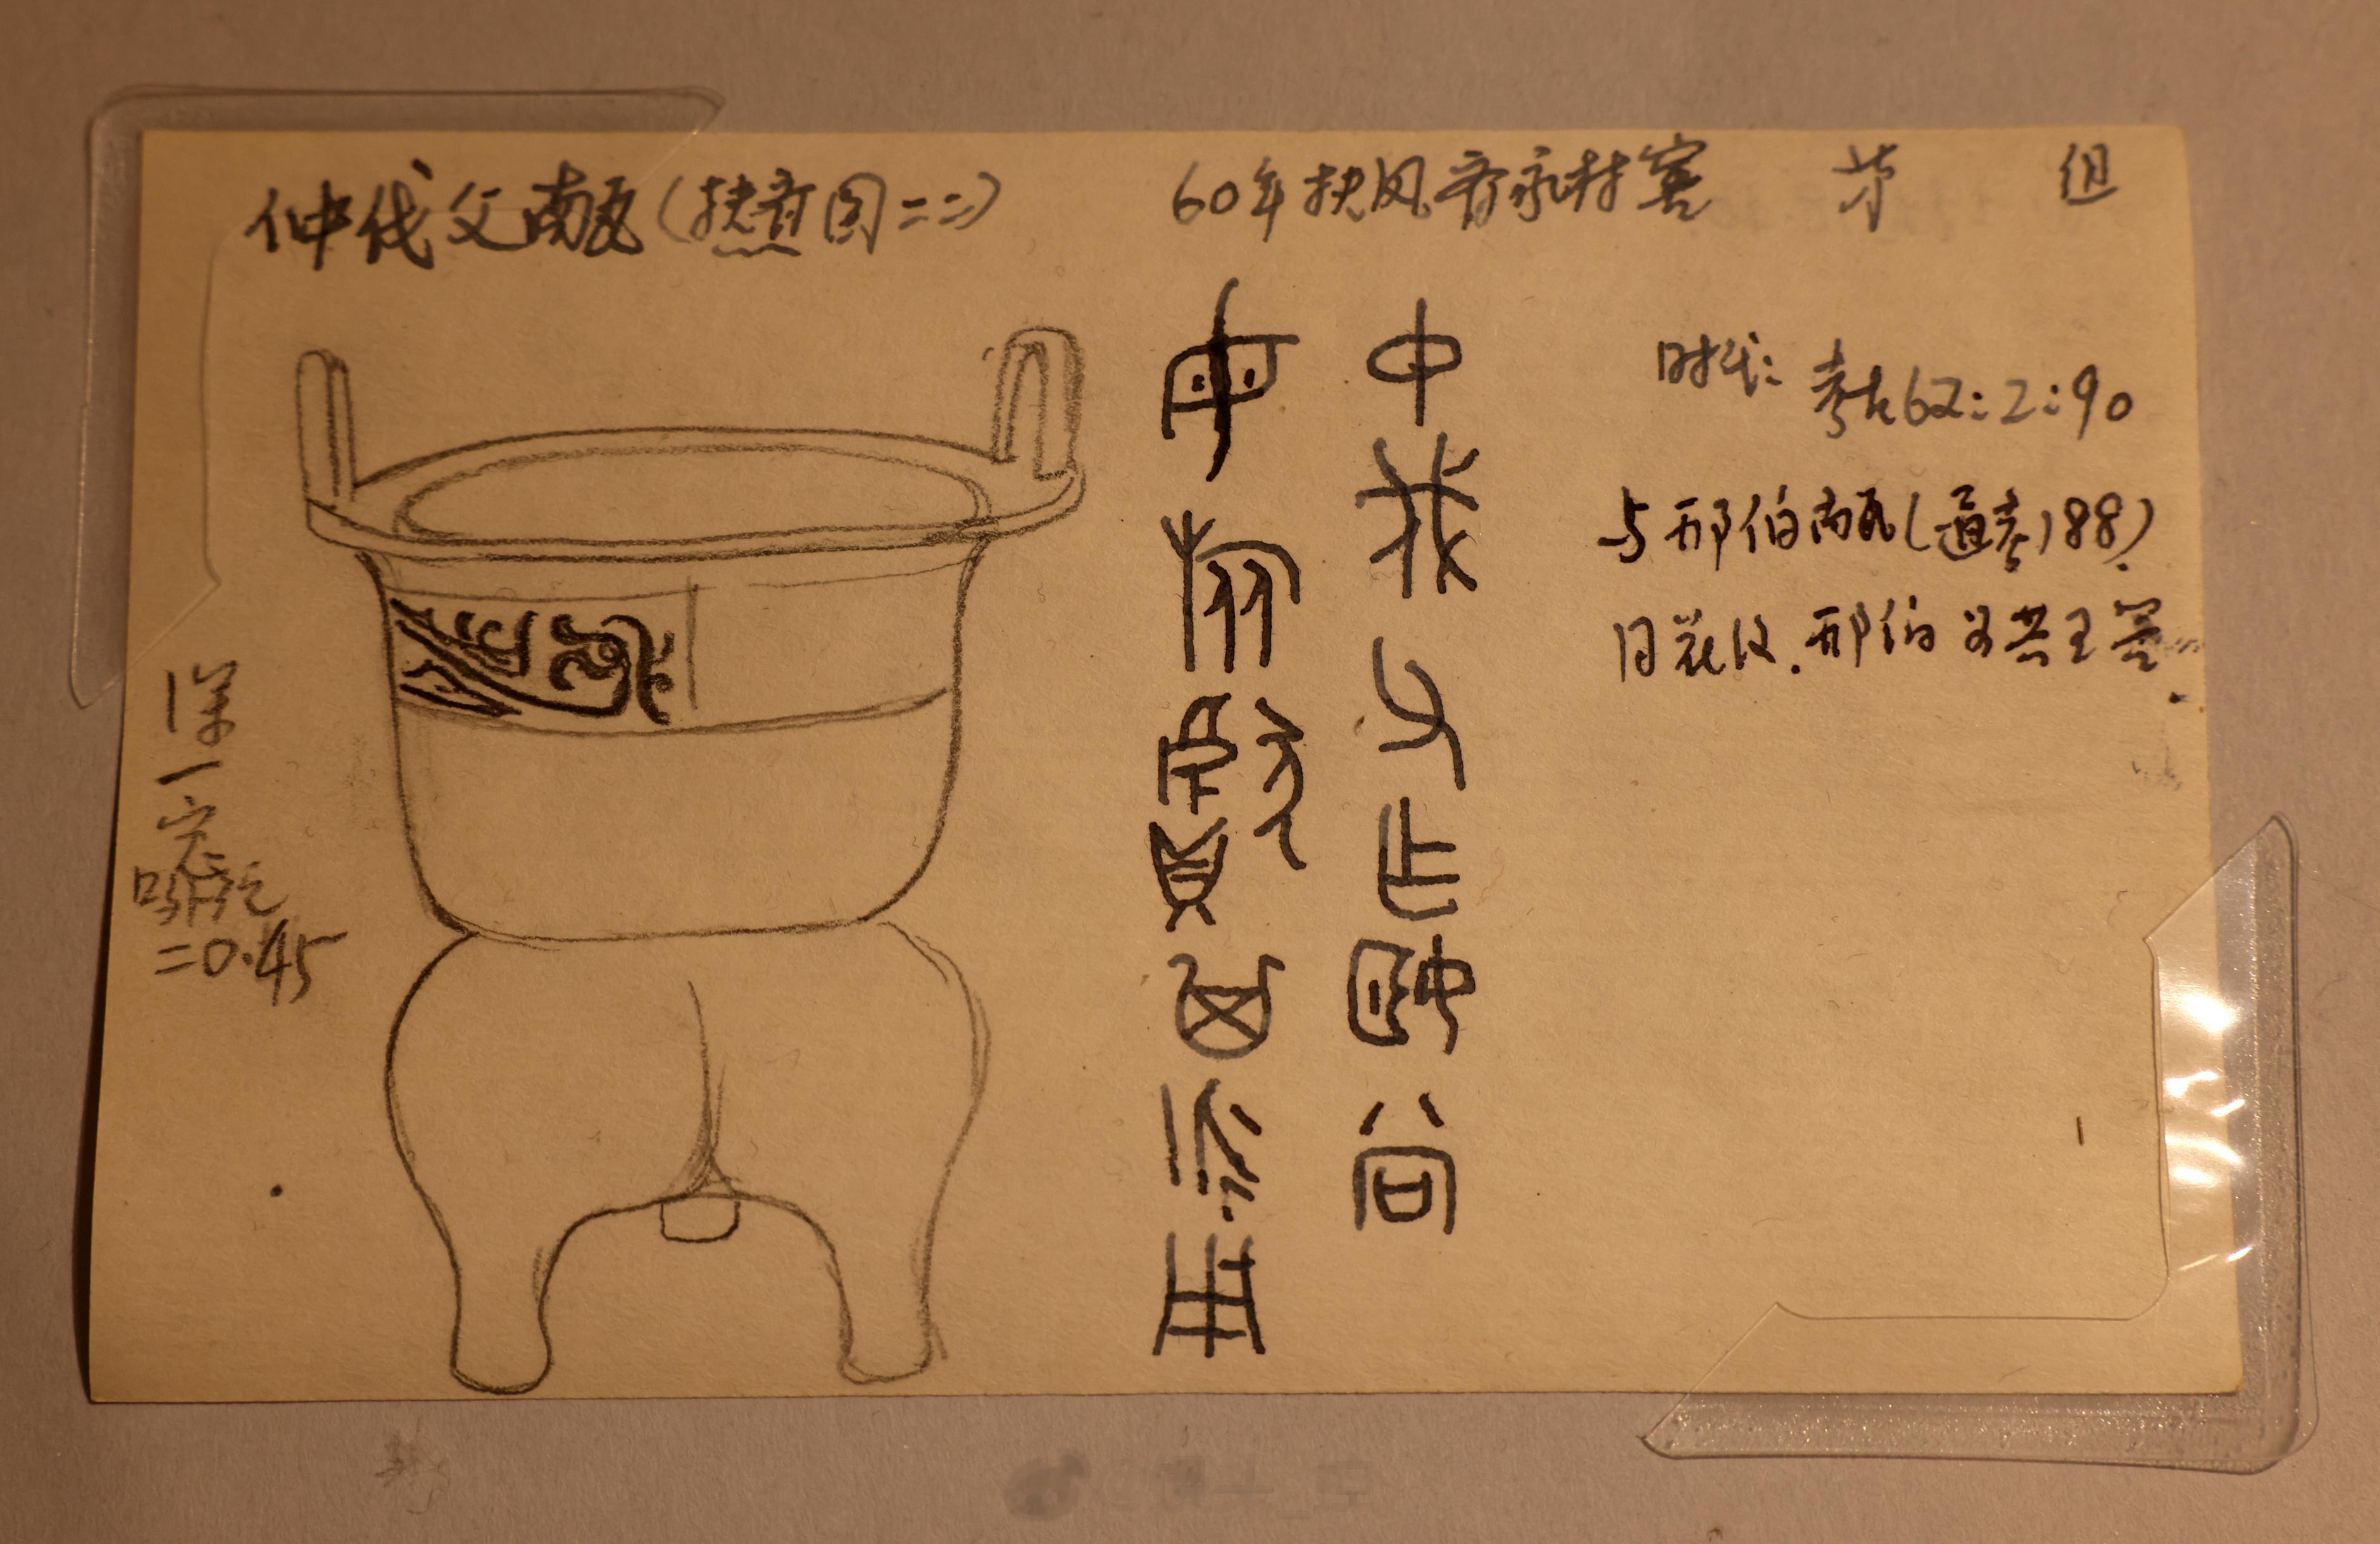 仲伐父甗(扶齐图二二)
60年扶风齐家村窖 第 组
中伐父乍姬尚
母旅甗其永用
时代: 考古62:2:90
与邢伯甗(通考188)
同花纹.邢伯为共王器
=0.45